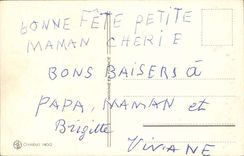 BONNE FÊTE PETITE
MAMAN CHERIE
BONS BAISERS à
PAPA, MAMAN et
Brigitte
VIVIANE